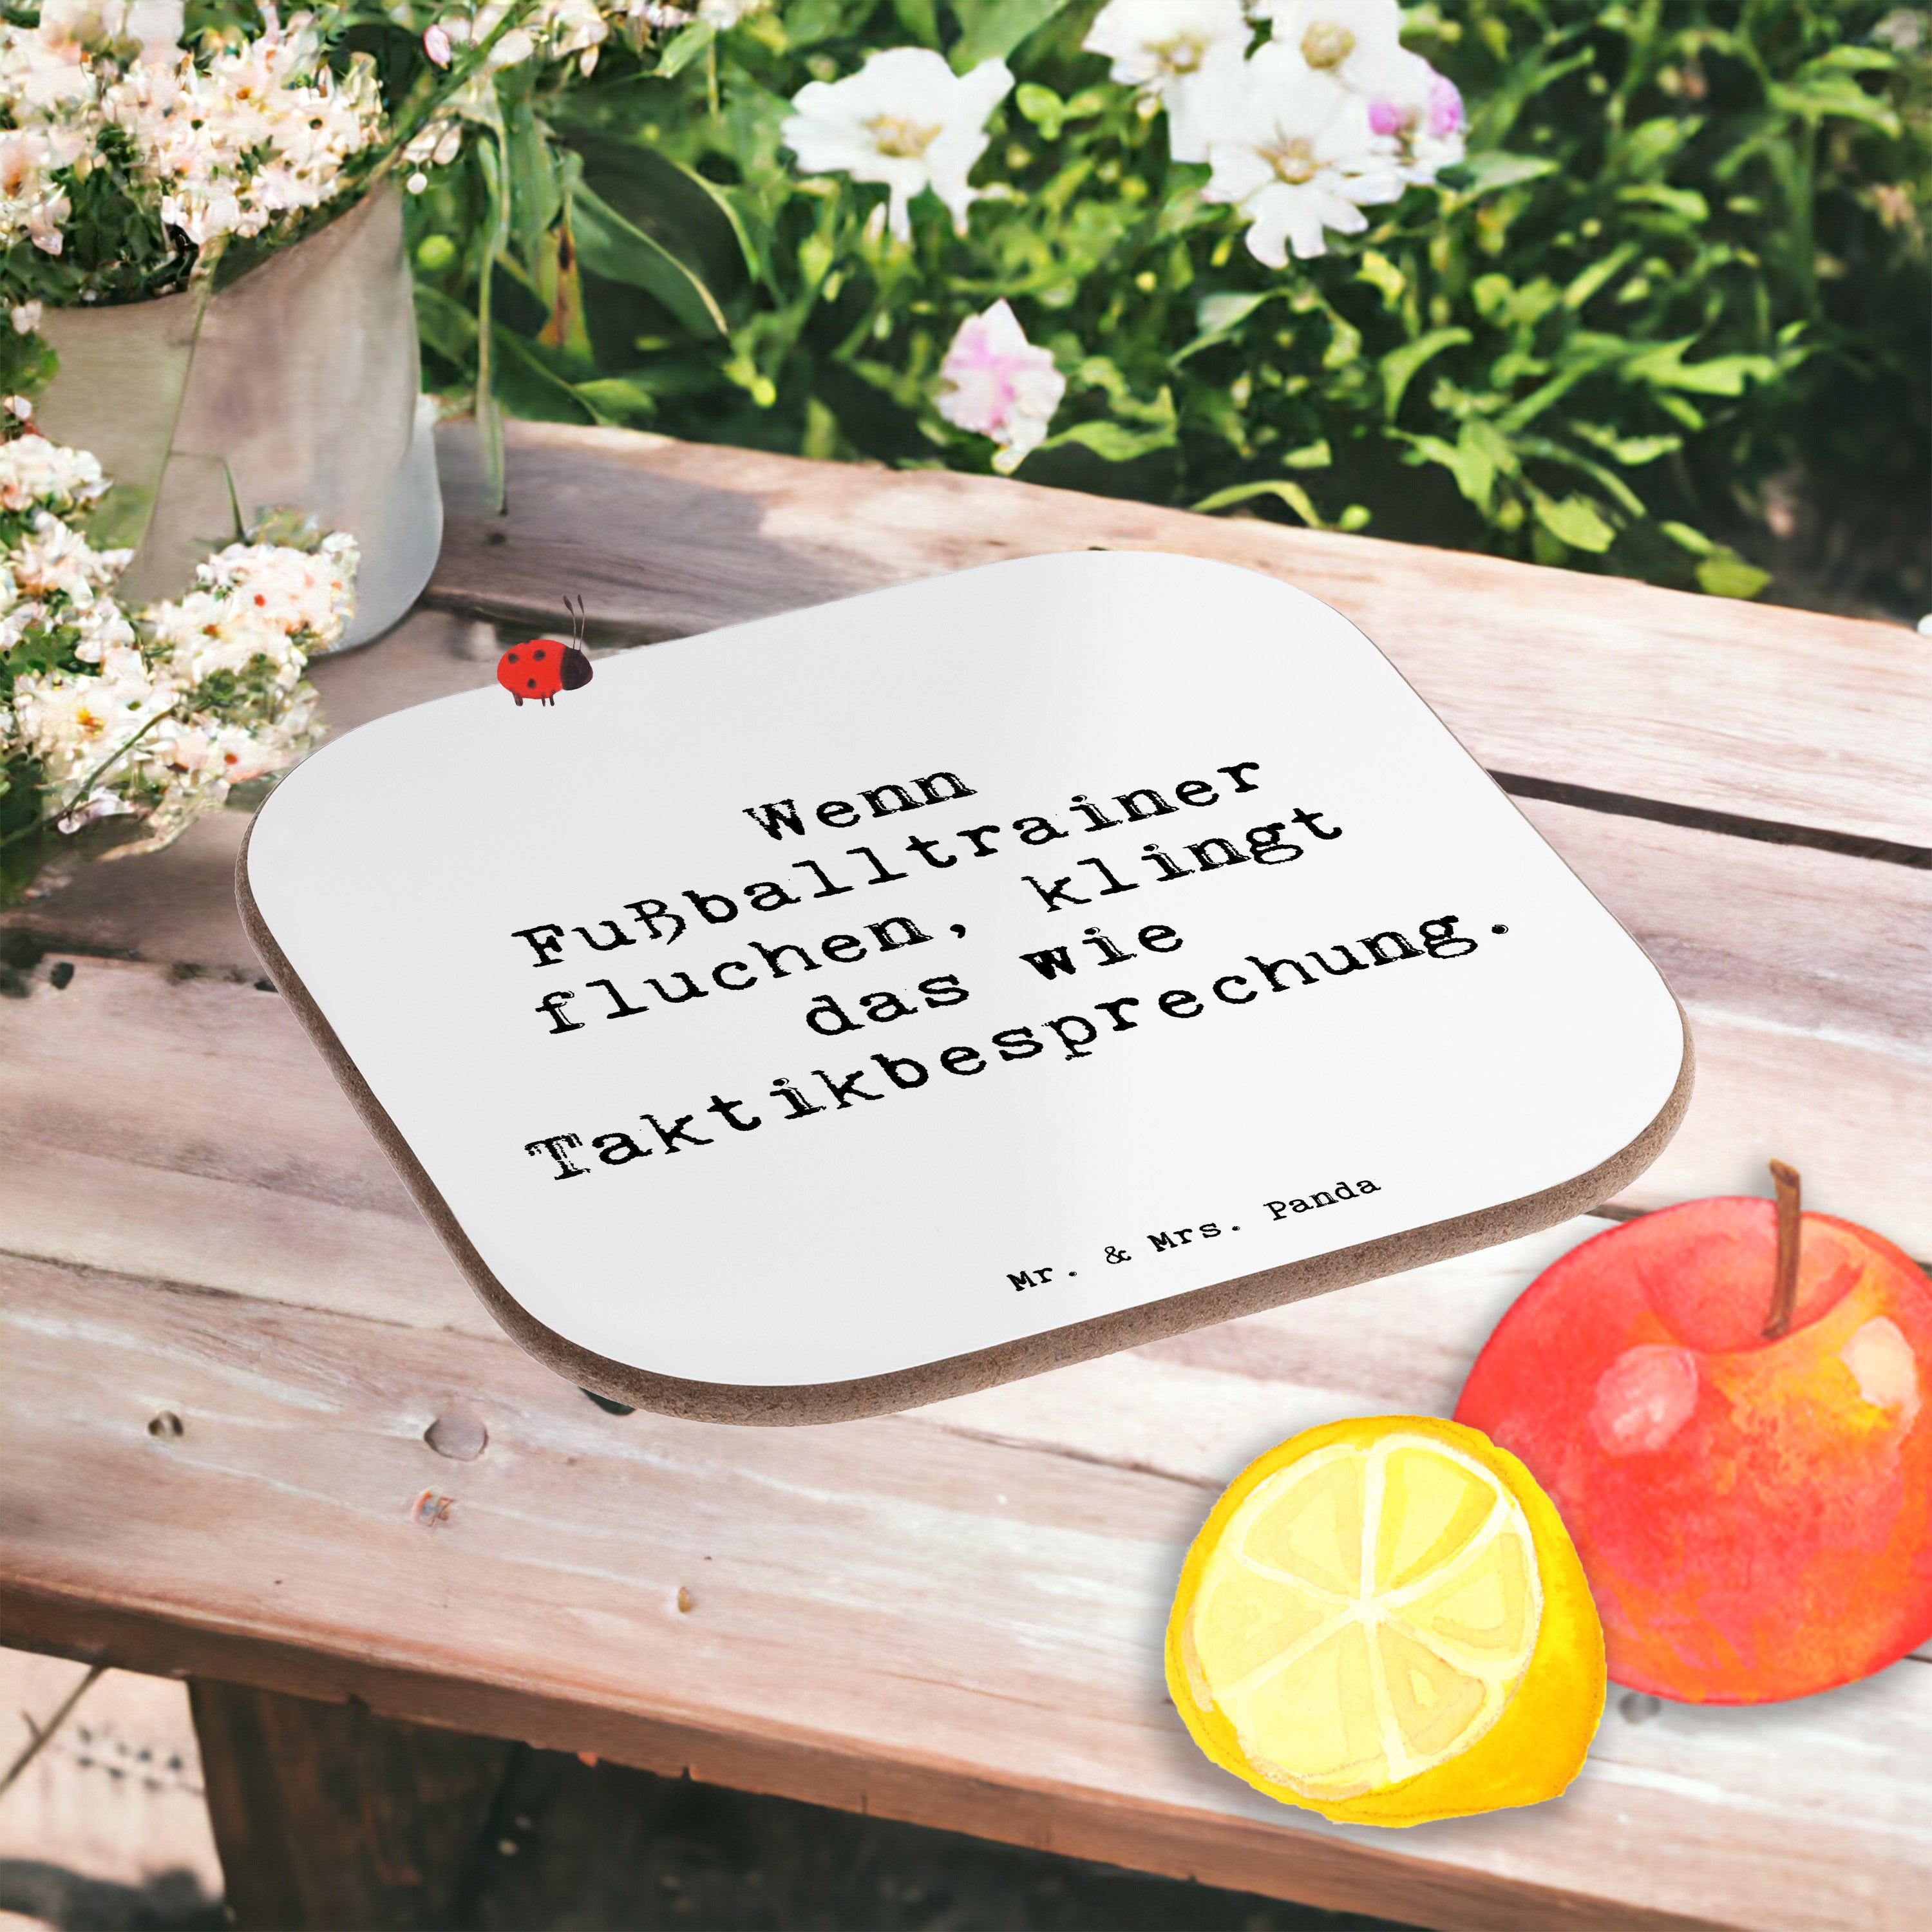 Wenn
Fußballtrainer
fluchen, klingt
das wie
Taktikbesprechung.
Mr. & Mrs. Panda